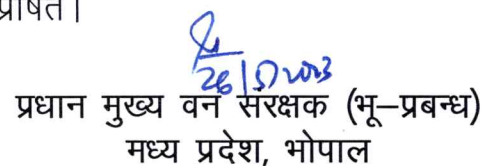 प्रेषित।
26/5/2023
प्रधान मुख्य वन संरक्षक (भू–प्रबन्ध)
मध्य प्रदेश, भोपाल